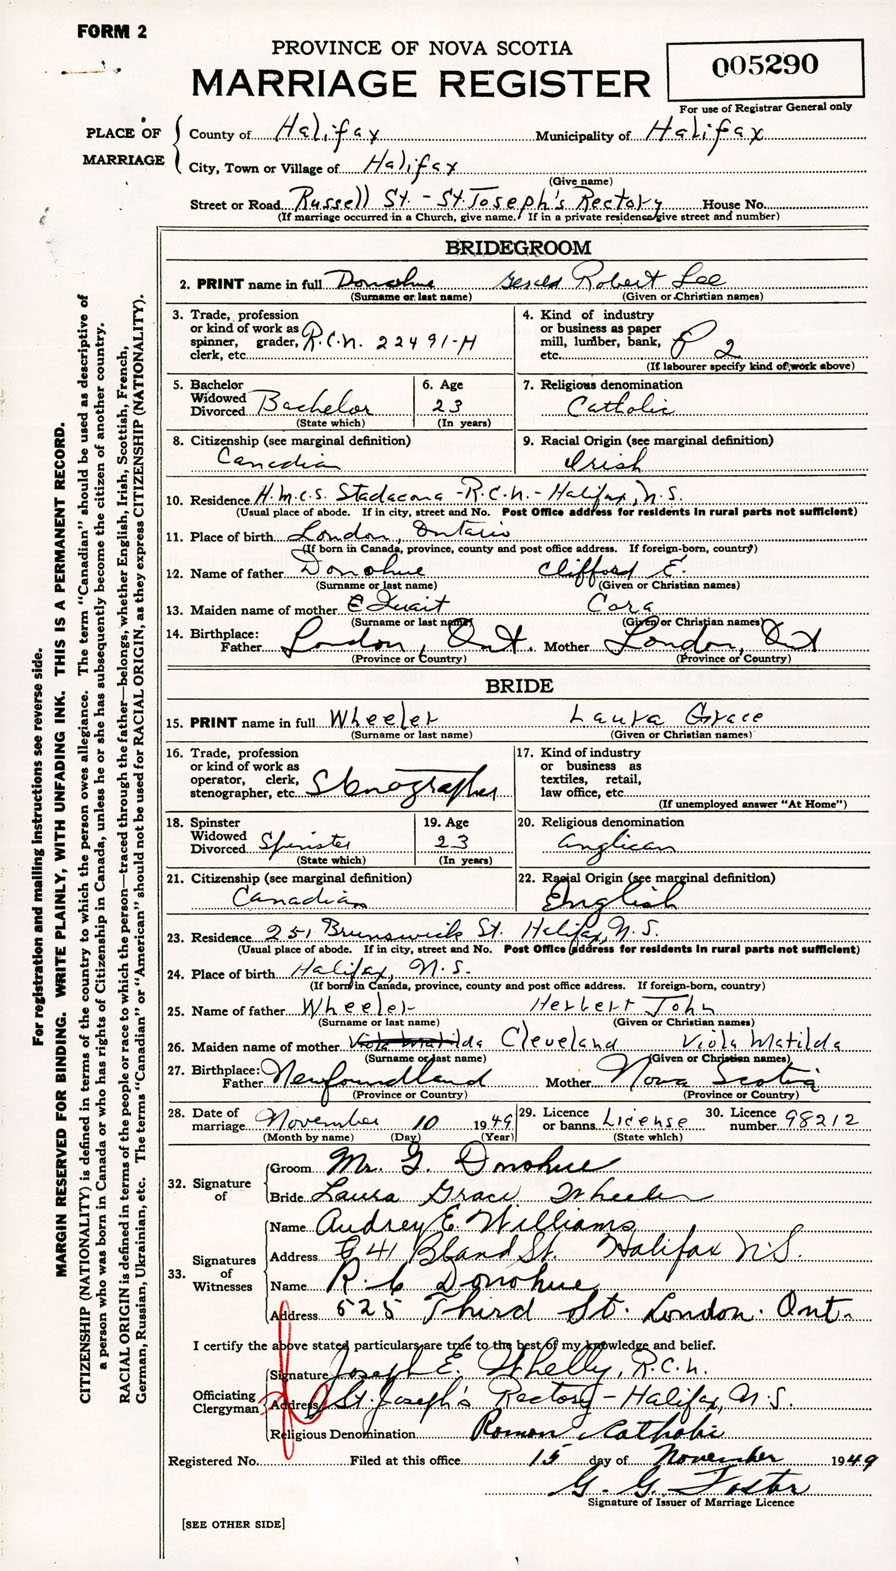 FORM 2
PROVINCE OF NOVA SCOTIA
MARRIAGE REGISTER
005290
For use of Registrar General only
PLACE OF MARRIAGE
County of Halifax Municipality of Halifax
City, Town or Village of Halifax
(Give name)
Street or Road Russell St. - St Joseph's Rectory House No.
(If marriage occurred in a Church, give name. If in a private residence give street and number)
BRIDEGROOM
2. PRINT name in full Donohue Gerald Robert Lee
(Surname or last name) (Given or Christian names)
3. Trade, profession or kind of work as spinner, grader, clerk, etc. R.C.N. 22491-H
4. Kind of industry or business as paper mill, lumber, bank, etc. P 2
(If labourer specify kind of work above)
5. Bachelor Widowed Divorced Bachelor
(State which)
6. Age 23
(In years)
7. Religious denomination Catholic
8. Citizenship (see marginal definition) Canadian
9. Racial Origin (see marginal definition) Irish
10. Residence H.M.C.S. Stadacona - R.C.N. - Halifax, N.S.
(Usual place of abode. If in city, street and No. Post Office address for residents in rural parts not sufficient)
11. Place of birth London, Ontario
(If born in Canada, province, county and post office address. If foreign-born, country)
12. Name of father Donohue Clifford E.
(Surname or last name) (Given or Christian names)
13. Maiden name of mother Cora
(Surname or last name) (Given or Christian names)
14. Birthplace: Father London, Ont. Mother London, Ont
(Province or Country) (Province or Country)
BRIDE
15. PRINT name in full Wheeler Laura Grace
(Surname or last name) (Given or Christian names)
16. Trade, profession or kind of work as operator, clerk, stenographer, etc. Stenographer
17. Kind of industry or business as textiles, retail, law office, etc.
(If unemployed answer "At Home")
18. Spinster Widowed Divorced Spinster
(State which)
19. Age 23
(In years)
20. Religious denomination Anglican
21. Citizenship (see marginal definition) Canadian
22. Racial Origin (see marginal definition) English
23. Residence 251 Brunswick St. Halifax, N.S.
(Usual place of abode. If in city, street and No. Post Office address for residents in rural parts not sufficient)
24. Place of birth Halifax, N.S.
(If born in Canada, province, county and post office address. If foreign-born, country)
25. Name of father Wheeler Herbert John
(Surname or last name) (Given or Christian names)
26. Maiden name of mother Viola Matilda Cleveland Viola Matilda
(Surname or last name) (Given or Christian names)
27. Birthplace: Father Newfoundland Mother Nova Scotia
(Province or Country) (Province or Country)
28. Date of marriage November 10 1949
(Month by name) (Day) (Year)
29. Licence or banns License
(State which)
30. Licence number 98212
32. Signature of
Groom Mr. G. Donohue
Bride Laura Grace Wheeler
33. Signatures of Witnesses
Name Audrey E. Williams
Address 41 Bland St. Halifax N.S.
Name R. C Donohue
Address 525 Third St. London. Ont.
I certify the above stated particulars are true to the best of my knowledge and belief.
Officiating Clergyman
Signature Joseph E. Whelly, R.C.N.
Address St. Joseph's Rectory - Halifax, N.S.
Religious Denomination Roman Catholic
Registered No. Filed at this office 15 day of November 1949
G. G. Foster
Signature of Issuer of Marriage Licence
[SEE OTHER SIDE]
For registration and mailing instructions see reverse side.
MARGIN RESERVED FOR BINDING. WRITE PLAINLY, WITH UNFADING INK. THIS IS A PERMANENT RECORD.
CITIZENSHIP (NATIONALITY) is defined in terms of the country to which the person owes allegiance. The term "Canadian" should be used as descriptive of
a person who was born in Canada or who has rights of Citizenship in Canada, unless he or she has subsequently become the citizen of another country.
RACIAL ORIGIN is defined in terms of the people or race to which the person—traced through the father—belongs, whether English, Irish, Scottish, French,
German, Russian, Ukrainian, etc. The terms "Canadian" or "American" should not be used for RACIAL ORIGIN, as they express CITIZENSHIP (NATIONALITY).